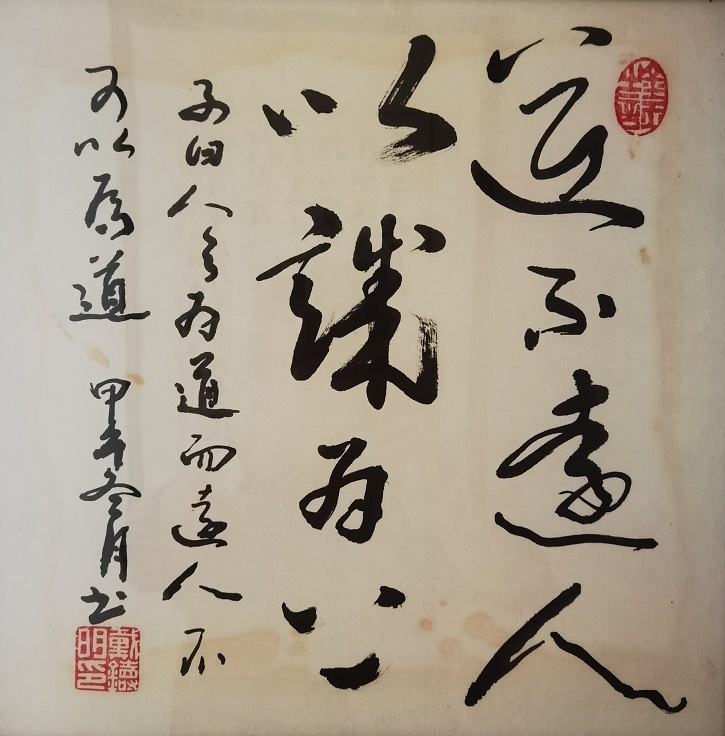 道不遠人
以誠为公
子曰人之为道而遠人不
可以為道 甲午冬月书
戴德明印